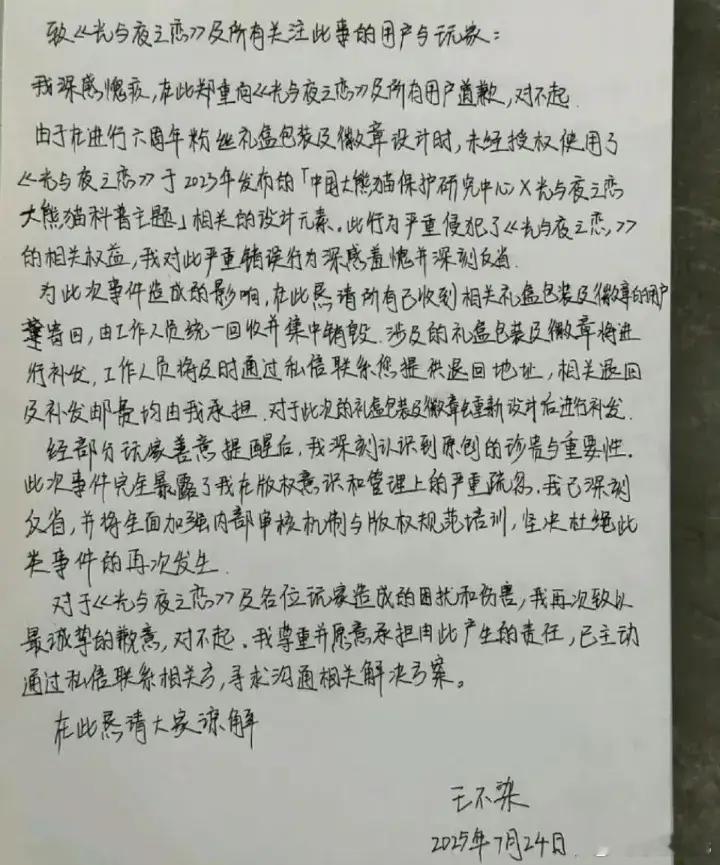 致《光与夜之恋》及所有关注此事的用户与玩家：
我深感愧疚，在此郑重向《光与夜之恋》及所有用户道歉，对不起.
由于在进行六周年粉丝礼盒包装及徽章设计时，未经授权使用了
《光与夜之恋》于2023年发布的「中国大熊猫保护研究中心X光与夜之恋
大熊猫科普主题」相关的设计元素。此行为严重侵犯了《光与夜之恋》
的相关权益，我对此严重错误行为深感羞愧并深刻反省.
为此次事件造成的影响，在此恳请所有已收到相关礼盒包装及徽章的用户
寄回，由工作人员统一回收并集中销毁.涉及的礼盒包装及徽章将进
行补发，工作人员将及时通过私信联系您提供退回地址，相关退回
及补发邮费均由我承担.对于此次的礼盒包装及徽章会重新设计后进行补发.
经部分玩家善意提醒后，我深刻认识到原创的珍贵与重要性.
此次事件完全暴露了我在版权意识和管理上的严重疏忽.我已深刻
反省，并将全面加强内部审核机制与版权规范培训，坚决杜绝此
类事件的再次发生.
对于《光与夜之恋》及各位玩家造成的困扰和伤害，我再次致以
最诚挚的歉意，对不起.我尊重并愿意承担由此产生的责任，已主动
通过私信联系相关方，寻求沟通相关解决方案。
在此恳请大家谅解
王不染
2025年7月24日.